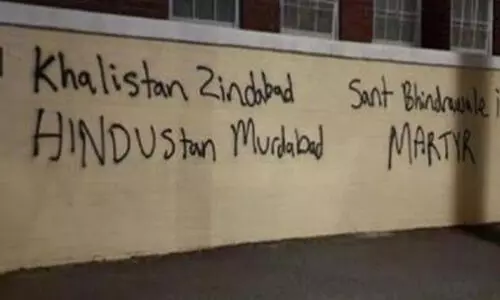 Khalistan Zindabad
HINDUStan Murdabad
Sant Bhindrawale i
MARTYR